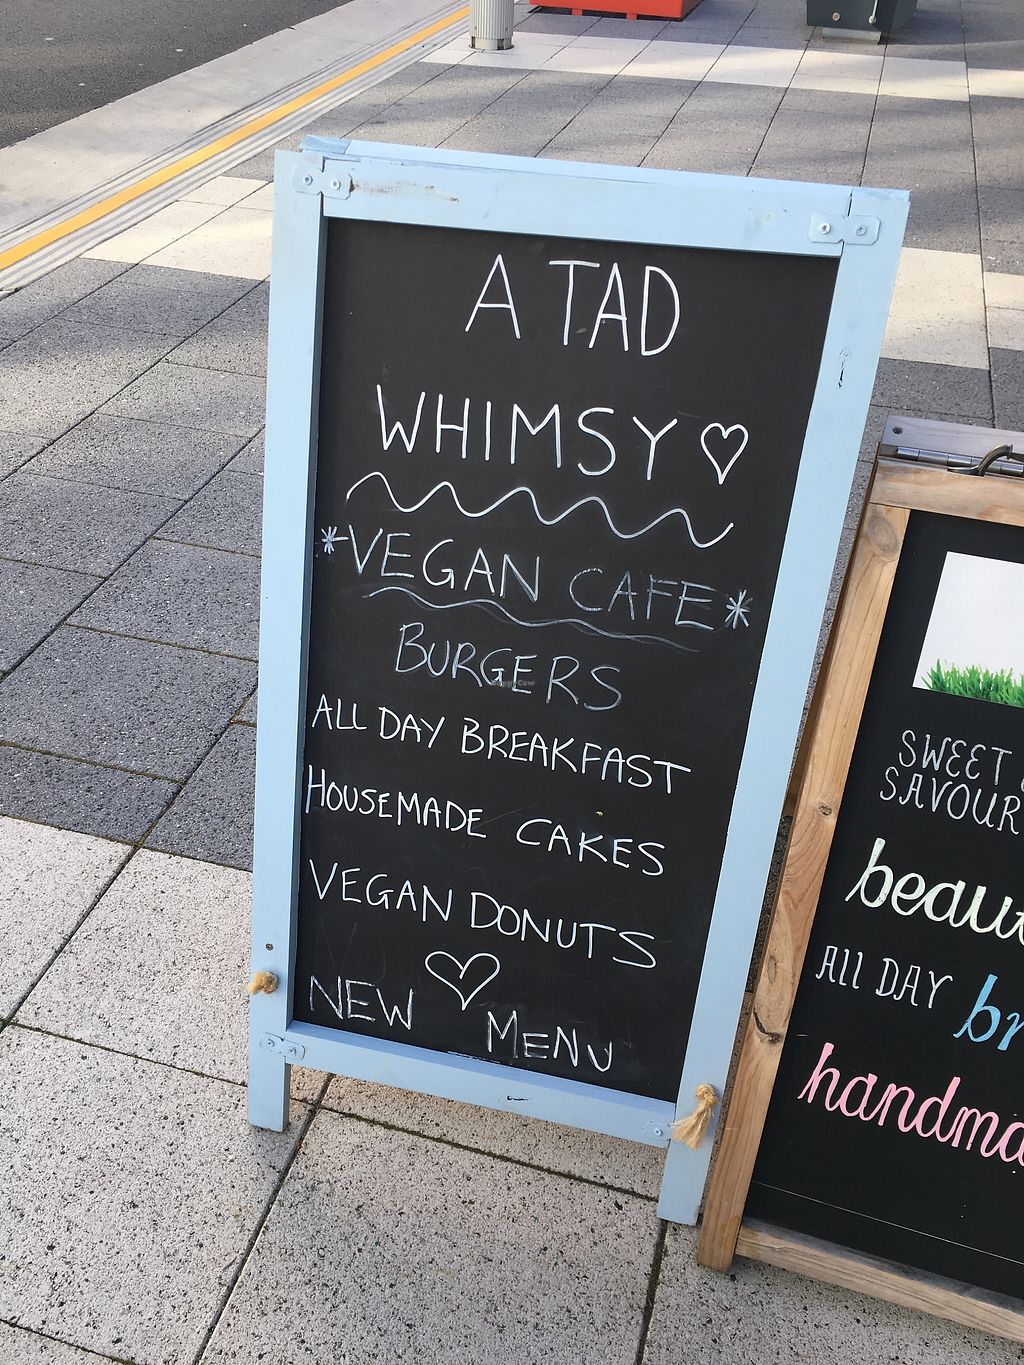 A TAD
WHIMSY ♡
*VEGAN CAFE*
BURGERS
ALL DAY BREAKFAST
HOUSEMADE CAKES
VEGAN DONUTS
NEW ♡ MENU
HappyCow
SWEET
SAVOUR
beau
All DAY br
handma